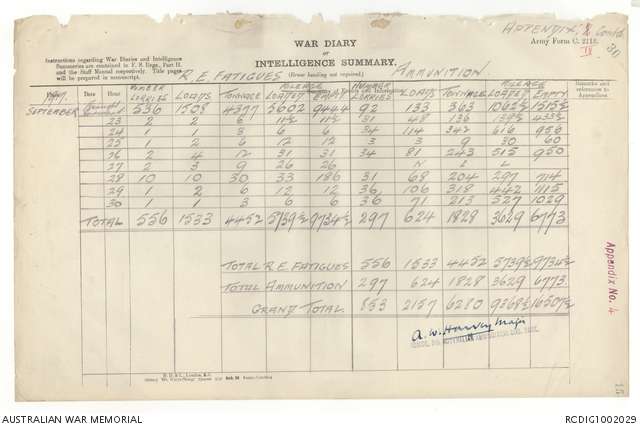 APPENDIX Contd
WAR DIARY
or
Army Form C. 2118.
IV
30
Instructions regarding War Diaries and Intelligence
Summaries are contained in F. S. Regs., Part II.
and the Staff Manual respectively. Title pages
will be prepared in manuscript.
INTELLIGENCE SUMMARY.
(Erase heading not required.)
R.E. FATIGUES AMMUNITION
Place Date Hour Remarks and references to Appendices
1917 NUMBER LORRIES LOADS TONNAGE MILEAGE LOADED EMPTY NUMBER LORRIES LOADS TONNAGE MILEAGE LOADED EMPTY
SEPTEMBER Brought 536 1509 4377 5602 9444 92 133 363 1062½ 1515½
23 2 2 6 11½ 11½ 31 48 136 138½ 433½
24 1 1 3 6 6 34 114 342 616 956
25 1 2 6 12 12 3 3 9 30 60
26 2 4 12 31 31 34 81 243 515 950
27 2 3 9 26 26 N I L
28 10 10 30 33 186 31 68 204 297 714
29 1 2 6 12 12 36 106 318 442 1115
30 1 1 3 6 6 36 71 213 527 1029
TOTAL 556 1533 4452 5739½ 9734½ 297 624 1828 3629 6773
TOTAL R.E. FATIGUES 556 1533 4452 5739½ 9734½
TOTAL AMMUNITION 297 624 1828 3629 6773
GRAND TOTAL 853 2157 6280 9368½ 16507½
A. W. Harvey Major
Appendix No. 4
15
AUSTRALIAN WAR MEMORIAL RCDIG1002029